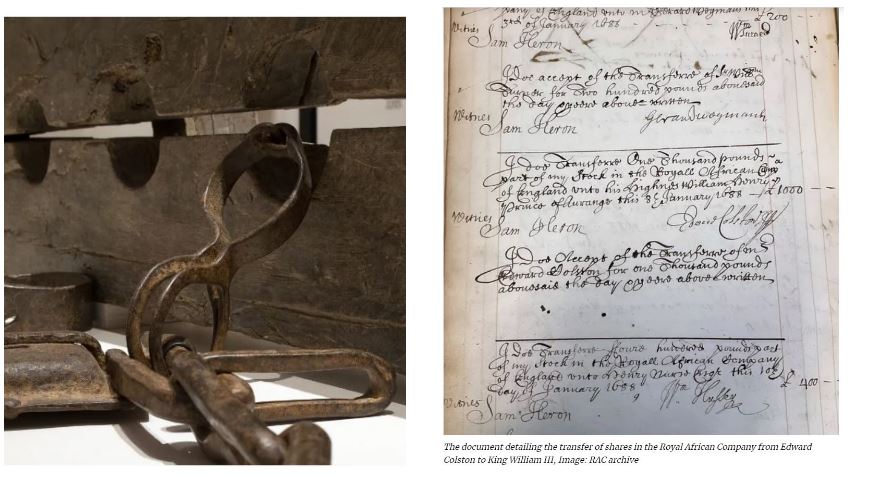 of England unto
of January 1688
£ 200
Witnes
Sam Heron
I doe accept of the Transferre of
Turner for Two hundred pounds abovesaid
the day & yeere above written
Witnes
Sam Heron
I doe Transferre One Thousand pounds
part of my Stock in the Royall African Comp
of England unto his Highnes William Henry
Prince of Aurange this January 1688
£ 1000
Witnes
Sam Heron
I Doe Accept of the Transferre of m
Edward Colston for one Thousand pounds
abovesaid the day & yeere above written
I Doe Transferre foure hundered pounds part
of my Stock in the Royall African Company
of England unto Henry this 10
day of January 1688
£ 400
Witnes
Sam Heron
The document detailing the transfer of shares in the Royal African Company from Edward
Colston to King William III, Image: RAC archive